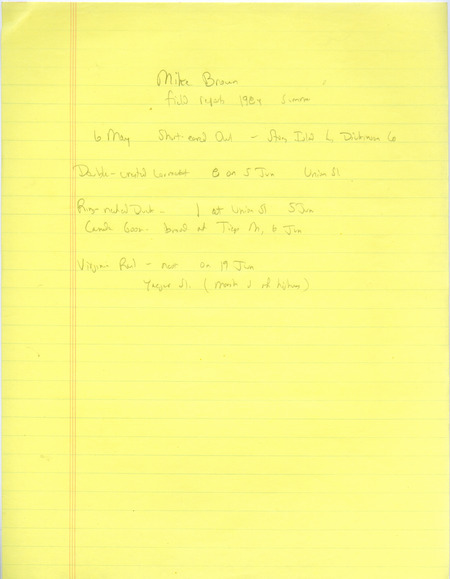 Mike Brown
field reports 1984 Summer
6 May Short-eared Owl - Stony Isld L. Dickinson Co
Double-crested Cormorant 8 on 5 Jun Union Sl
Ring-necked Duck - 1 at Union Sl 5 Jun
Canada Goose - brood at 6 Jun
Virginia Rail - nest on 19 Jun
Yager Sl. (marsh S of highway)